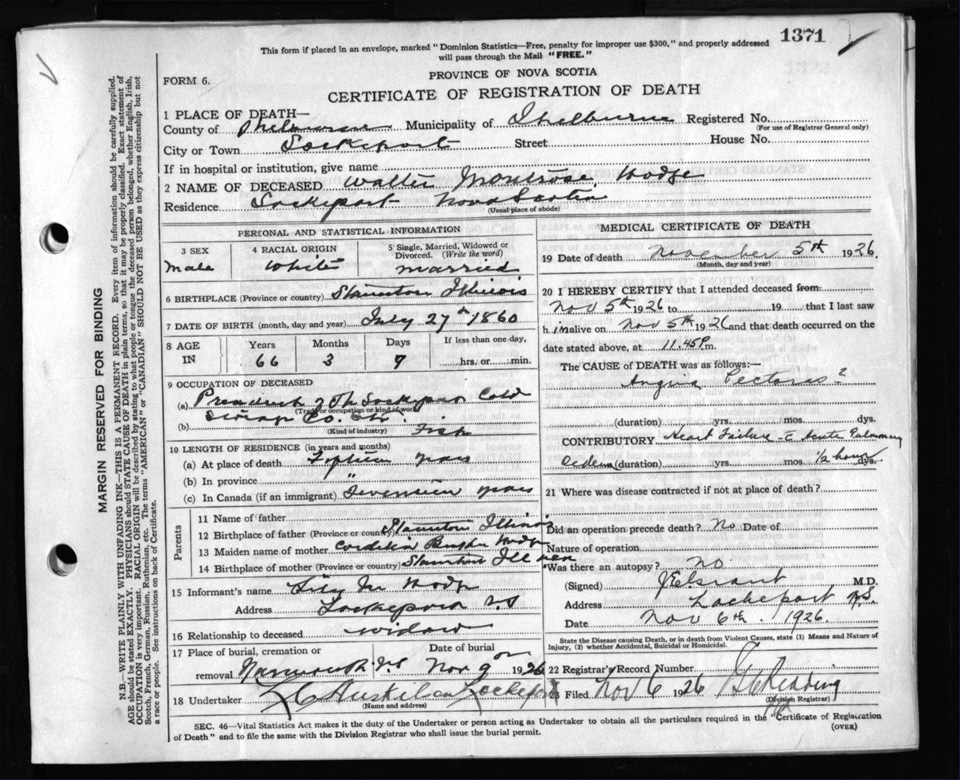 1371
This form if placed in an envelope, marked "Dominion Statistics—Free, penalty for improper use $300," and properly addressed
will pass through the Mail "FREE."
FORM 6.
PROVINCE OF NOVA SCOTIA
CERTIFICATE OF REGISTRATION OF DEATH
1 PLACE OF DEATH—
County of Shelburne Municipality of Shelburne Registered No.
(For use of Registrar General only)
City or Town Lockeport Street House No.
If in hospital or institution, give name
2 NAME OF DECEASED Walter Montrose Hodge
Residence Lockeport Nova Scotia
(Usual place of abode)
PERSONAL AND STATISTICAL INFORMATION
3 SEX 4 RACIAL ORIGIN 5 Single, Married, Widowed or
Divorced. (Write the word)
Male White married
6 BIRTHPLACE (Province or country) Staunton Illinois
7 DATE OF BIRTH (month, day and year) July 27th 1860
8 AGE Years Months Days If less than one day,
IN 66 3 9 hrs. or min.
9 OCCUPATION OF DECEASED
(a) President of The Lockeport Cold
(Trade or occupation or kind of work)
Storage Co.
(b) Fish
(Kind of industry)
10 LENGTH OF RESIDENCE (in years and months)
(a) At place of death years
(b) In province "
(c) In Canada (if an immigrant) Seventeen years
Parents
11 Name of father
12 Birthplace of father (Province or country) Staunton Illinois
13 Maiden name of mother Cordelia Hodge
14 Birthplace of mother (Province or country) Staunton Illinois
15 Informant's name Hodge
Address Lockeport N.S
16 Relationship to deceased widow
17 Place of burial, cremation or Date of burial
removal Yarmouth N.S Nov 9th 1926
18 Undertaker Lockeport
(Name and address)
MEDICAL CERTIFICATE OF DEATH
19 Date of death November 5th 1926
(Month, day and year)
20 I HEREBY CERTIFY that I attended deceased from:
Nov 5th 1926 to 19 that I last saw
h im alive on Nov 5th 1926 and that death occurred on the
date stated above, at 11.45 P.m.
The CAUSE of DEATH was as follows:—
Angina Pectoris?
(duration) yrs. mos. dys.
CONTRIBUTORY Heart Failure c Acute Pulmonary
Oedema (duration) yrs. mos. 1/2 hour dys.
21 Where was disease contracted if not at place of death?
Did an operation precede death? No Date of
Nature of operation
Was there an autopsy? no.
(Signed) M.D.
Address Lockeport N.S.
Date Nov 6th. 1926.
State the Disease causing Death, or in death from Violent Causes, state (1) Means and Nature of
Injury, (2) whether Accidental, Suicidal or Homicidal.
22 Registrar's Record Number
23 Filed Nov 6 1926
(Division Registrar)
SEC. 46—Vital Statistics Act makes it the duty of the Undertaker or person acting as Undertaker to obtain all the particulars required in the "Certificate of Registration
of Death" and to file the same with the Division Registrar who shall issue the burial permit.
(OVER)
MARGIN RESERVED FOR BINDING
N.B.—WRITE PLAINLY WITH UNFADING INK—THIS IS A PERMANENT RECORD. Every item of information should be carefully supplied.
AGE should be stated EXACTLY. PHYSICIANS should STATE CAUSE OF DEATH in plain terms, so that it may be properly classified. Exact statement of
OCCUPATION is very important. RACIAL ORIGIN will be described by stating to what people or tongue the deceased person belonged, whether English, Irish,
Scotch, French, German, Russian, Ruthenian, etc. The terms "AMERICAN" or "CANADIAN" SHOULD NOT BE USED as they express citizenship but not
a race or people. See instructions on back of Certificate.